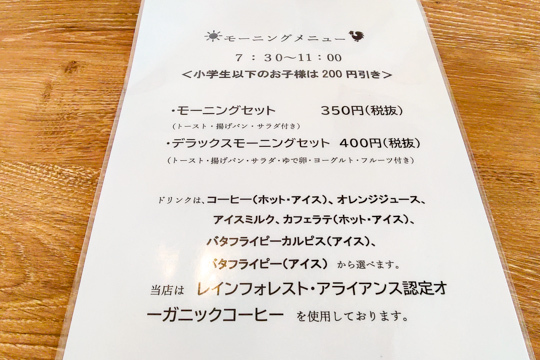 モーニングメニュー
7：30〜11：00
＜小学生以下のお子様は200円引き＞
・モーニングセット 350円(税抜)
(トースト・揚げパン・サラダ付き)
・デラックスモーニングセット 400円(税抜)
(トースト・揚げパン・サラダ・ゆで卵・ヨーグルト・フルーツ付き)
ドリンクは、コーヒー(ホット・アイス)、オレンジジュース、
アイスミルク、カフェラテ(ホット・アイス)、
バタフライピーカルピス(アイス)、
バタフライピー(アイス) から選べます。
当店は レインフォレスト・アライアンス認定オ
ーガニックコーヒー を使用しております。